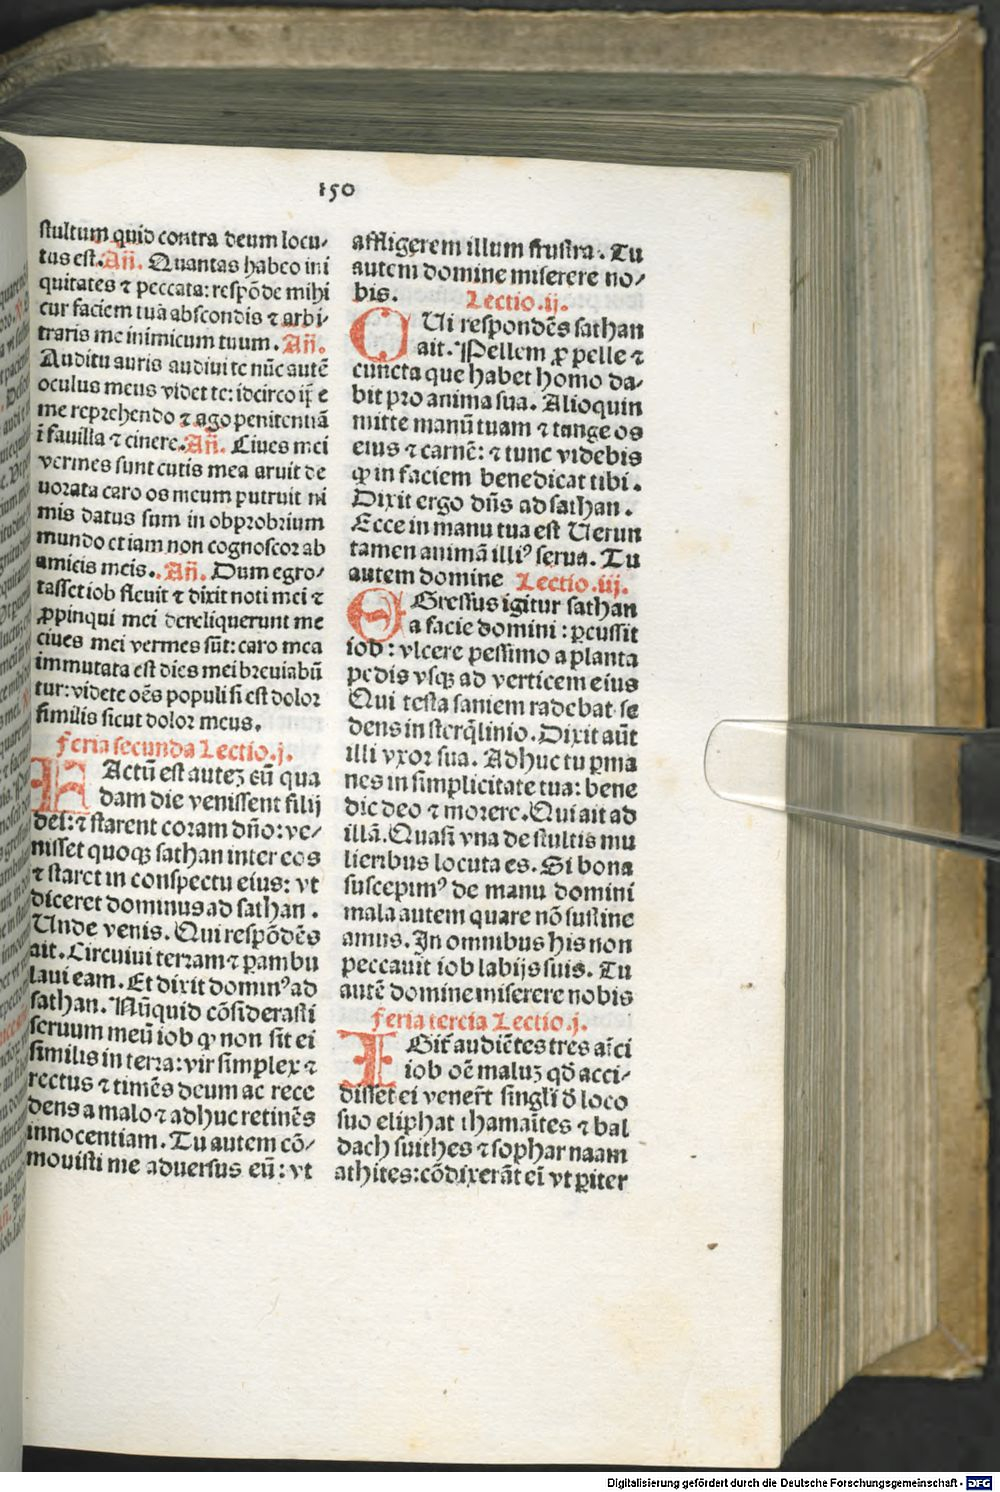 150
stultum quid contra deum locu⸗
tus est. Añ. Quantas habeo ini
quitates ⁊ peccata: respõde mihi
cur faciem tuã abscondis ⁊ arbi⸗
traris me inimicum tuum. Añ.
Auditu auris audiui te nũc autẽ
oculus meus videt te: idcirco ip̃e
me reprehendo ⁊ ago penitentiã
ĩ fauilla ⁊ cinere. Añ. Ciues mei
vermes sunt cutis mea aruit de
uorata caro os meum putruit ni
mis datus sum in obprobrium
mundo etiam non cognoscor ab
amicis meis. Añ. Dum egro⸗
tasset iob fleuit ⁊ dixit noti mei ⁊
ꝓpinqui mei dereliquerunt me
ciues mei vermes sũt: caro mea
immutata est dies mei breuiabũ
tur: videte oẽs populi si est dolor
similis sicut dolor meus.
Feria secunda Lectio .j.
FActũ est auteʒ cũ qua
dam die venissent filij
dei: ⁊ starent coram dño: ve⸗
nisset quoqʒ sathan inter eos
⁊ staret in conspectu eius: vt
diceret dominus ad sathan.
Unde venis. Qui respõdẽs
ait. Circuiui terram ⁊ ꝑambu
laui eam. Et dixit dominꝰ ad
sathan. Nũquid cõsiderasti
seruum meũ iob ꝙ non sit ei
similis in terra: vir simplex ⁊
rectus ⁊ timẽs deum ac rece
dens a malo ⁊ adhuc retinẽs
innocentiam. Tu autem cõ⸗
mouisti me aduersus eũ: vt
affligerem illum frustra. Tu
autem domine miserere no⸗
bis. Lectio .ij.
CUi respondẽs sathan
ait. Pellem ꝓ pelle ⁊
cuncta que habet homo da⸗
bit pro anima sua. Alioquin
mitte manũ tuam ⁊ tange os
eius ⁊ carnẽ: ⁊ tunc videbis
ꝙ in faciem benedicat tibi.
Dixit ergo dñs ad sathan.
Ecce in manu tua est Uerun
tamen animã illiꝰ serua. Tu
autem domine Lectio .iij.
EGressus igitur sathan
a facie domini: ꝑcussit
iob: vlcere pessimo a planta
pedis vsqʒ ad verticem eius
Qui testa saniem radebat se
dens in sterq̃linio. Dixit aũt
illi vxor sua. Adhuc tu ꝑma
nes in simplicitate tua: bene
dic deo ⁊ morere. Qui ait ad
illã. Quasi vna de stultis mu
lieribus locuta es. Si bona
suscepimꝰ de manu domini
mala autem quare nõ sustine
amus. In omnibus his non
peccauit iob labijs suis. Tu
autẽ domine miserere nobis
Feria tercia Lectio .j.
IGit̃ audiẽtes tres aĩci
iob oẽ maluʒ qđ acci⸗
disset ei venert̃ singl̃i đ loco
suo eliphat thamaites ⁊ bal
dach suithes ⁊ sophar naam
athites: cõdixerãt eĩ vt ꝑiter
Digitalisierung gefördert durch die Deutsche Forschungsgemeinschaft - DFG